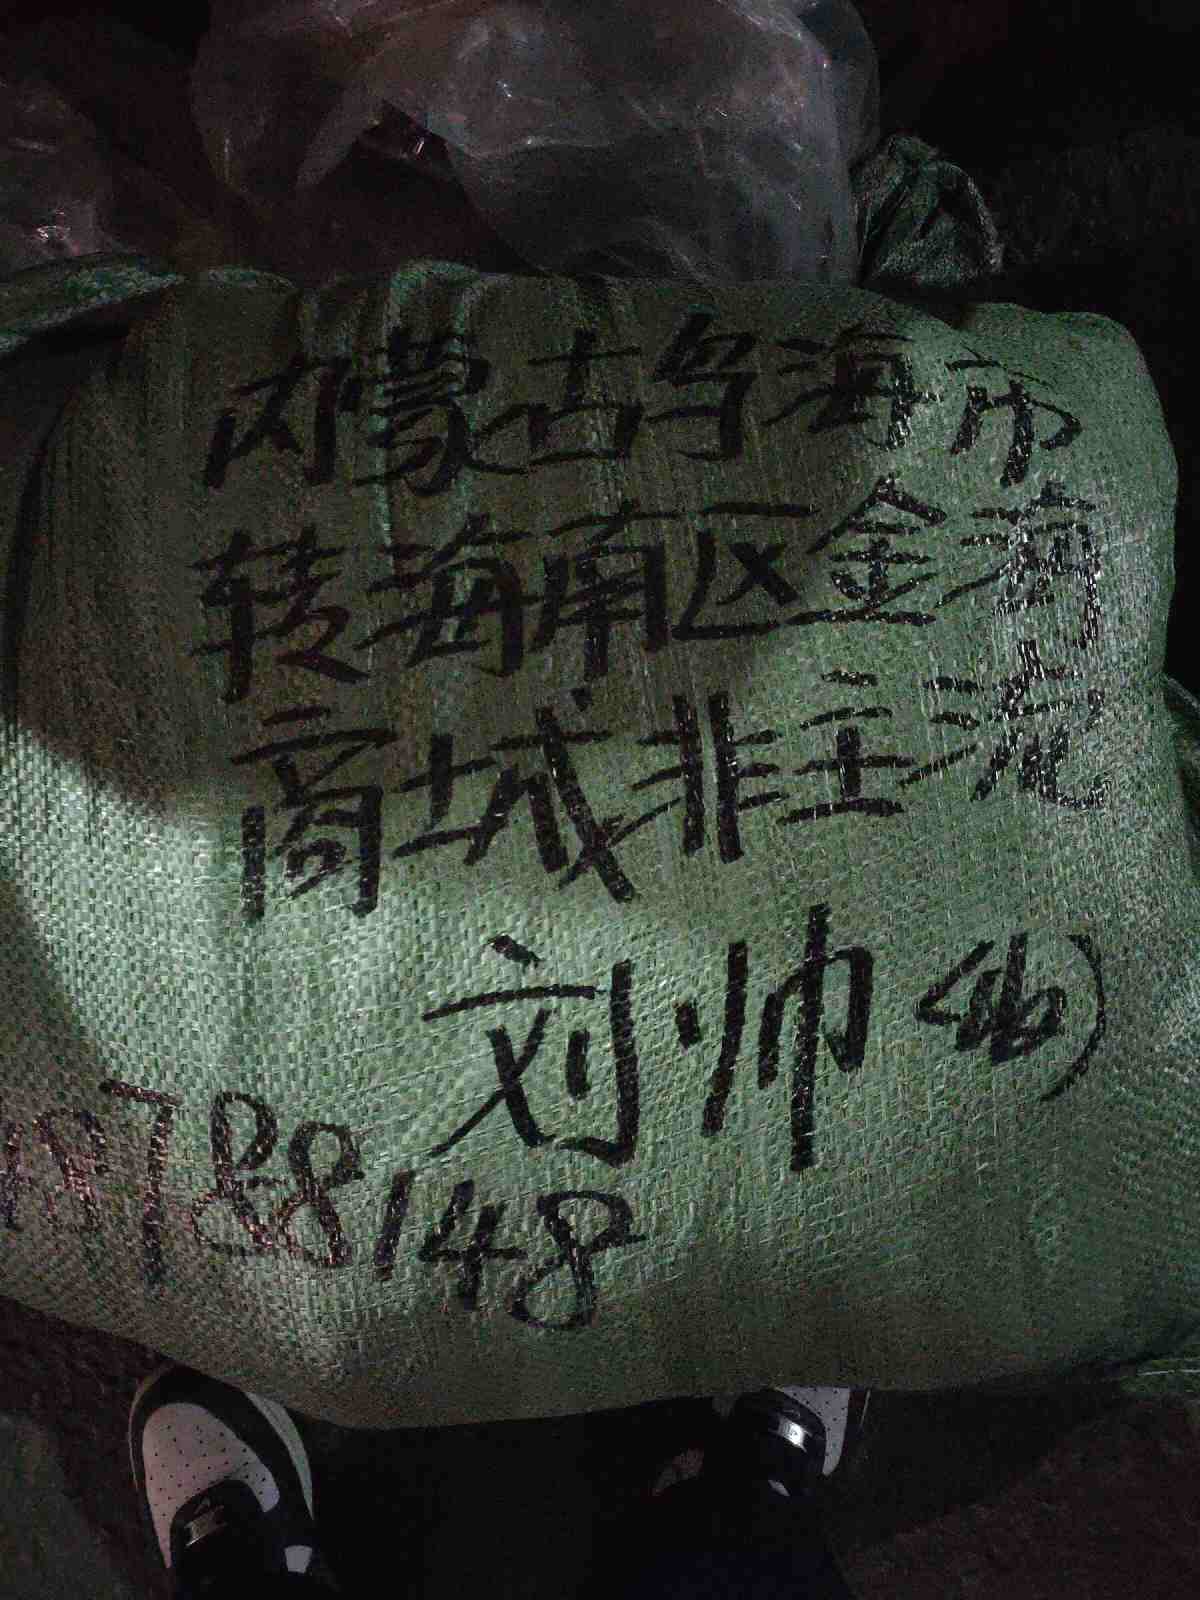 内蒙古乌海市
转海南区金海
商城非主流
刘帅
788148